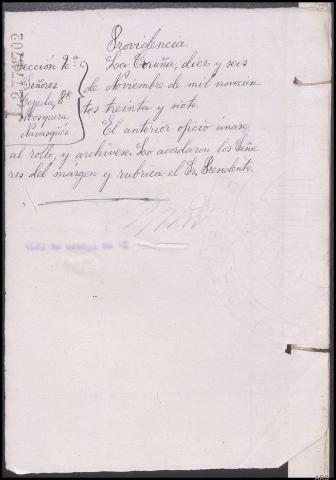 Providencia.
Sección 2ª
Señores
Cepeda, Pte
Mosquera.
Navasqües
La Coruña, diez y seis
de Noviembre de mil novecien
tos treinta y siete.
El anterior oficio únase
al rollo, y archívese. Lo acordaron los Seño
res del márgen y rubrica el Sr. Presidente.